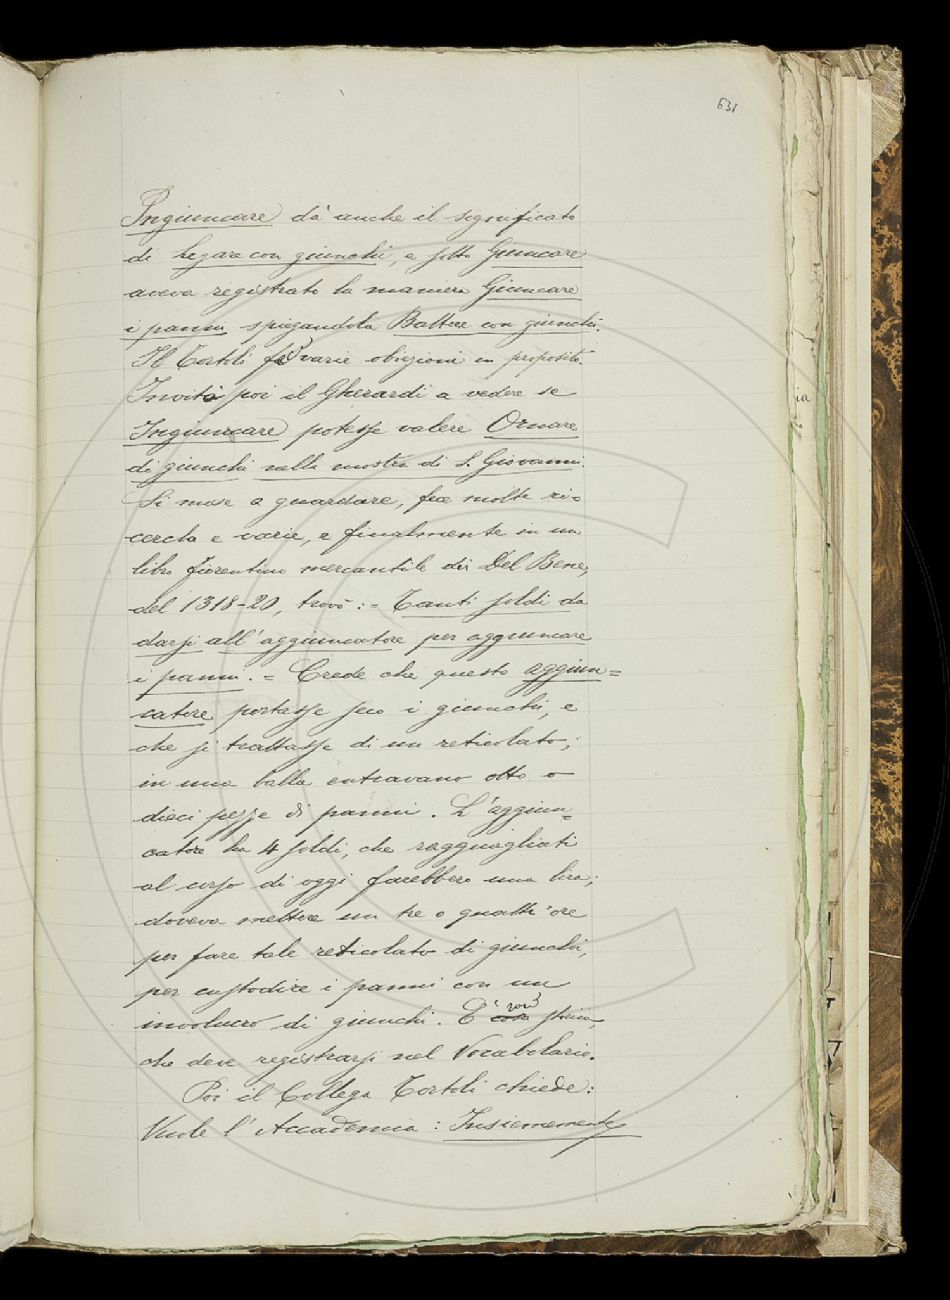 631
Ingiuncare dà anche il significato
di legare con giunchi, e sotto Giuncare
aveva registrato la maniera Giuncare
i panni, spiegandola Battere con giunchi.
Il Tortoli fa varie obiezioni in proposito.
Invitò poi il Gherardi a vedere se
Ingiuncare potesse valere Ornare
di giunchi nella mostra di S. Giovanni.
Si mise a guardare, fece molte ri=
cerche e varie, e finalmente in un
libro fiorentino mercantile dei Del Bene,
del 1318-20, trovò: = Tanti soldi da
darsi all'aggiuncatore per aggiuncare
i panni. = Crede che questo aggiun=
catore portasse seco i giunchi, e
che si trattasse di un reticolato;
in una balla entravano otto o
dieci pezze di panni. L'aggiun=
catore ha 4 soldi, che ragguagliati
al corso di oggi sarebbero una lira;
doveva mettere un tre o quattr'ore
per fare tale reticolato di giunchi,
per custodire i panni con un
involucro di giunchi. È voce storica,
che deve registrarsi nel Vocabolario.
Poi il Collega Tortoli chiede:
Vuole l'Accademia: Insiememente
ia